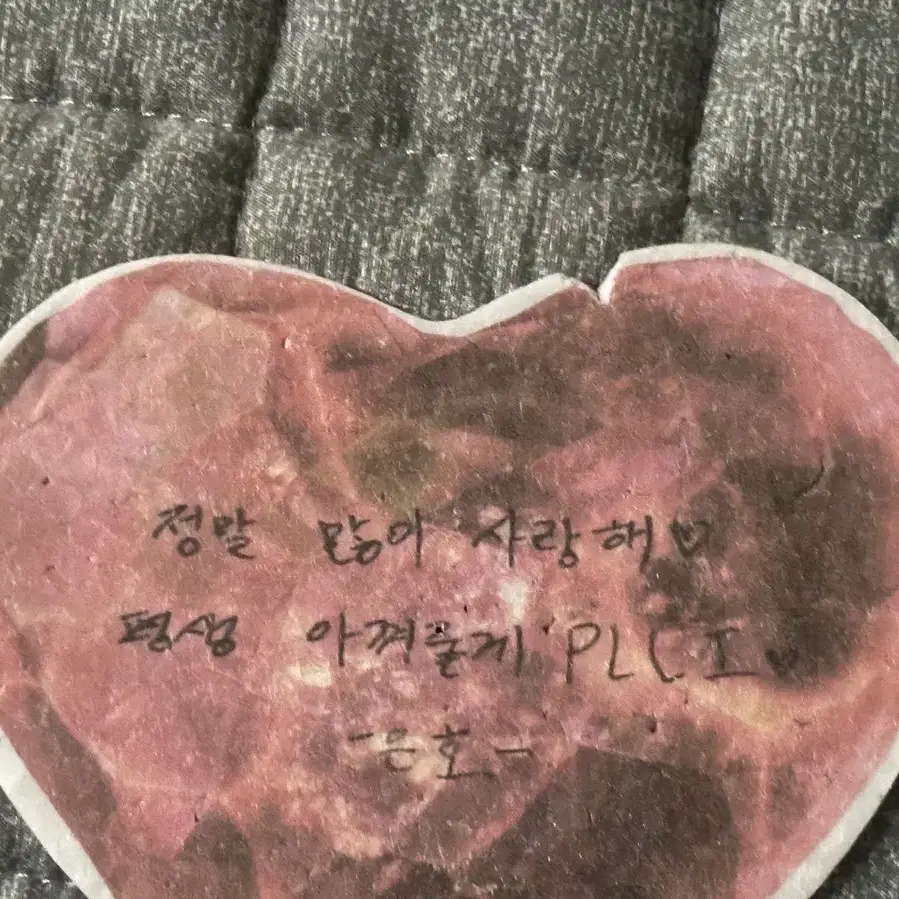 정말 많이 사랑해♡
평생 아껴줄게 PLC I♡
-은호-